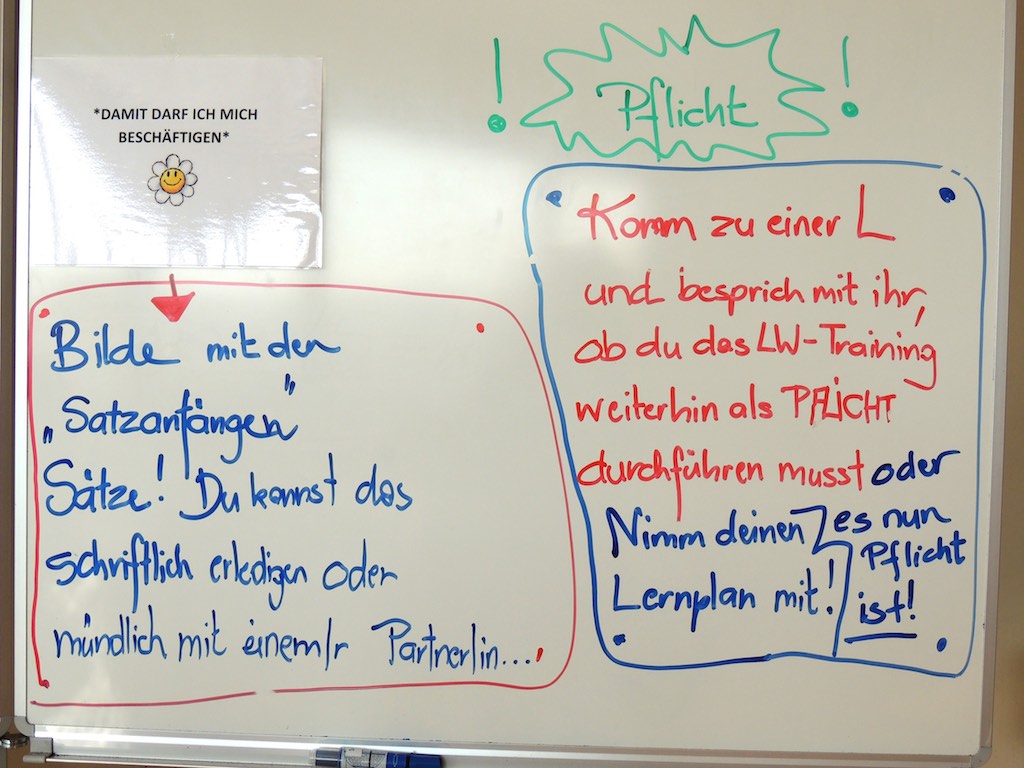 *DAMIT DARF ICH MICH
BESCHÄFTIGEN*
Bilde mit den
„Satzanfängen"
Sätze! Du kannst das
schriftlich erledigen oder
mündlich mit einem/r Partner/in...
! Pflicht !
Komm zu einer L
und besprich mit ihr,
ob du das LW-Training
weiterhin als PFLICHT
durchführen musst oder
es nun
Pflicht
ist!
Nimm deinen
Lernplan mit!